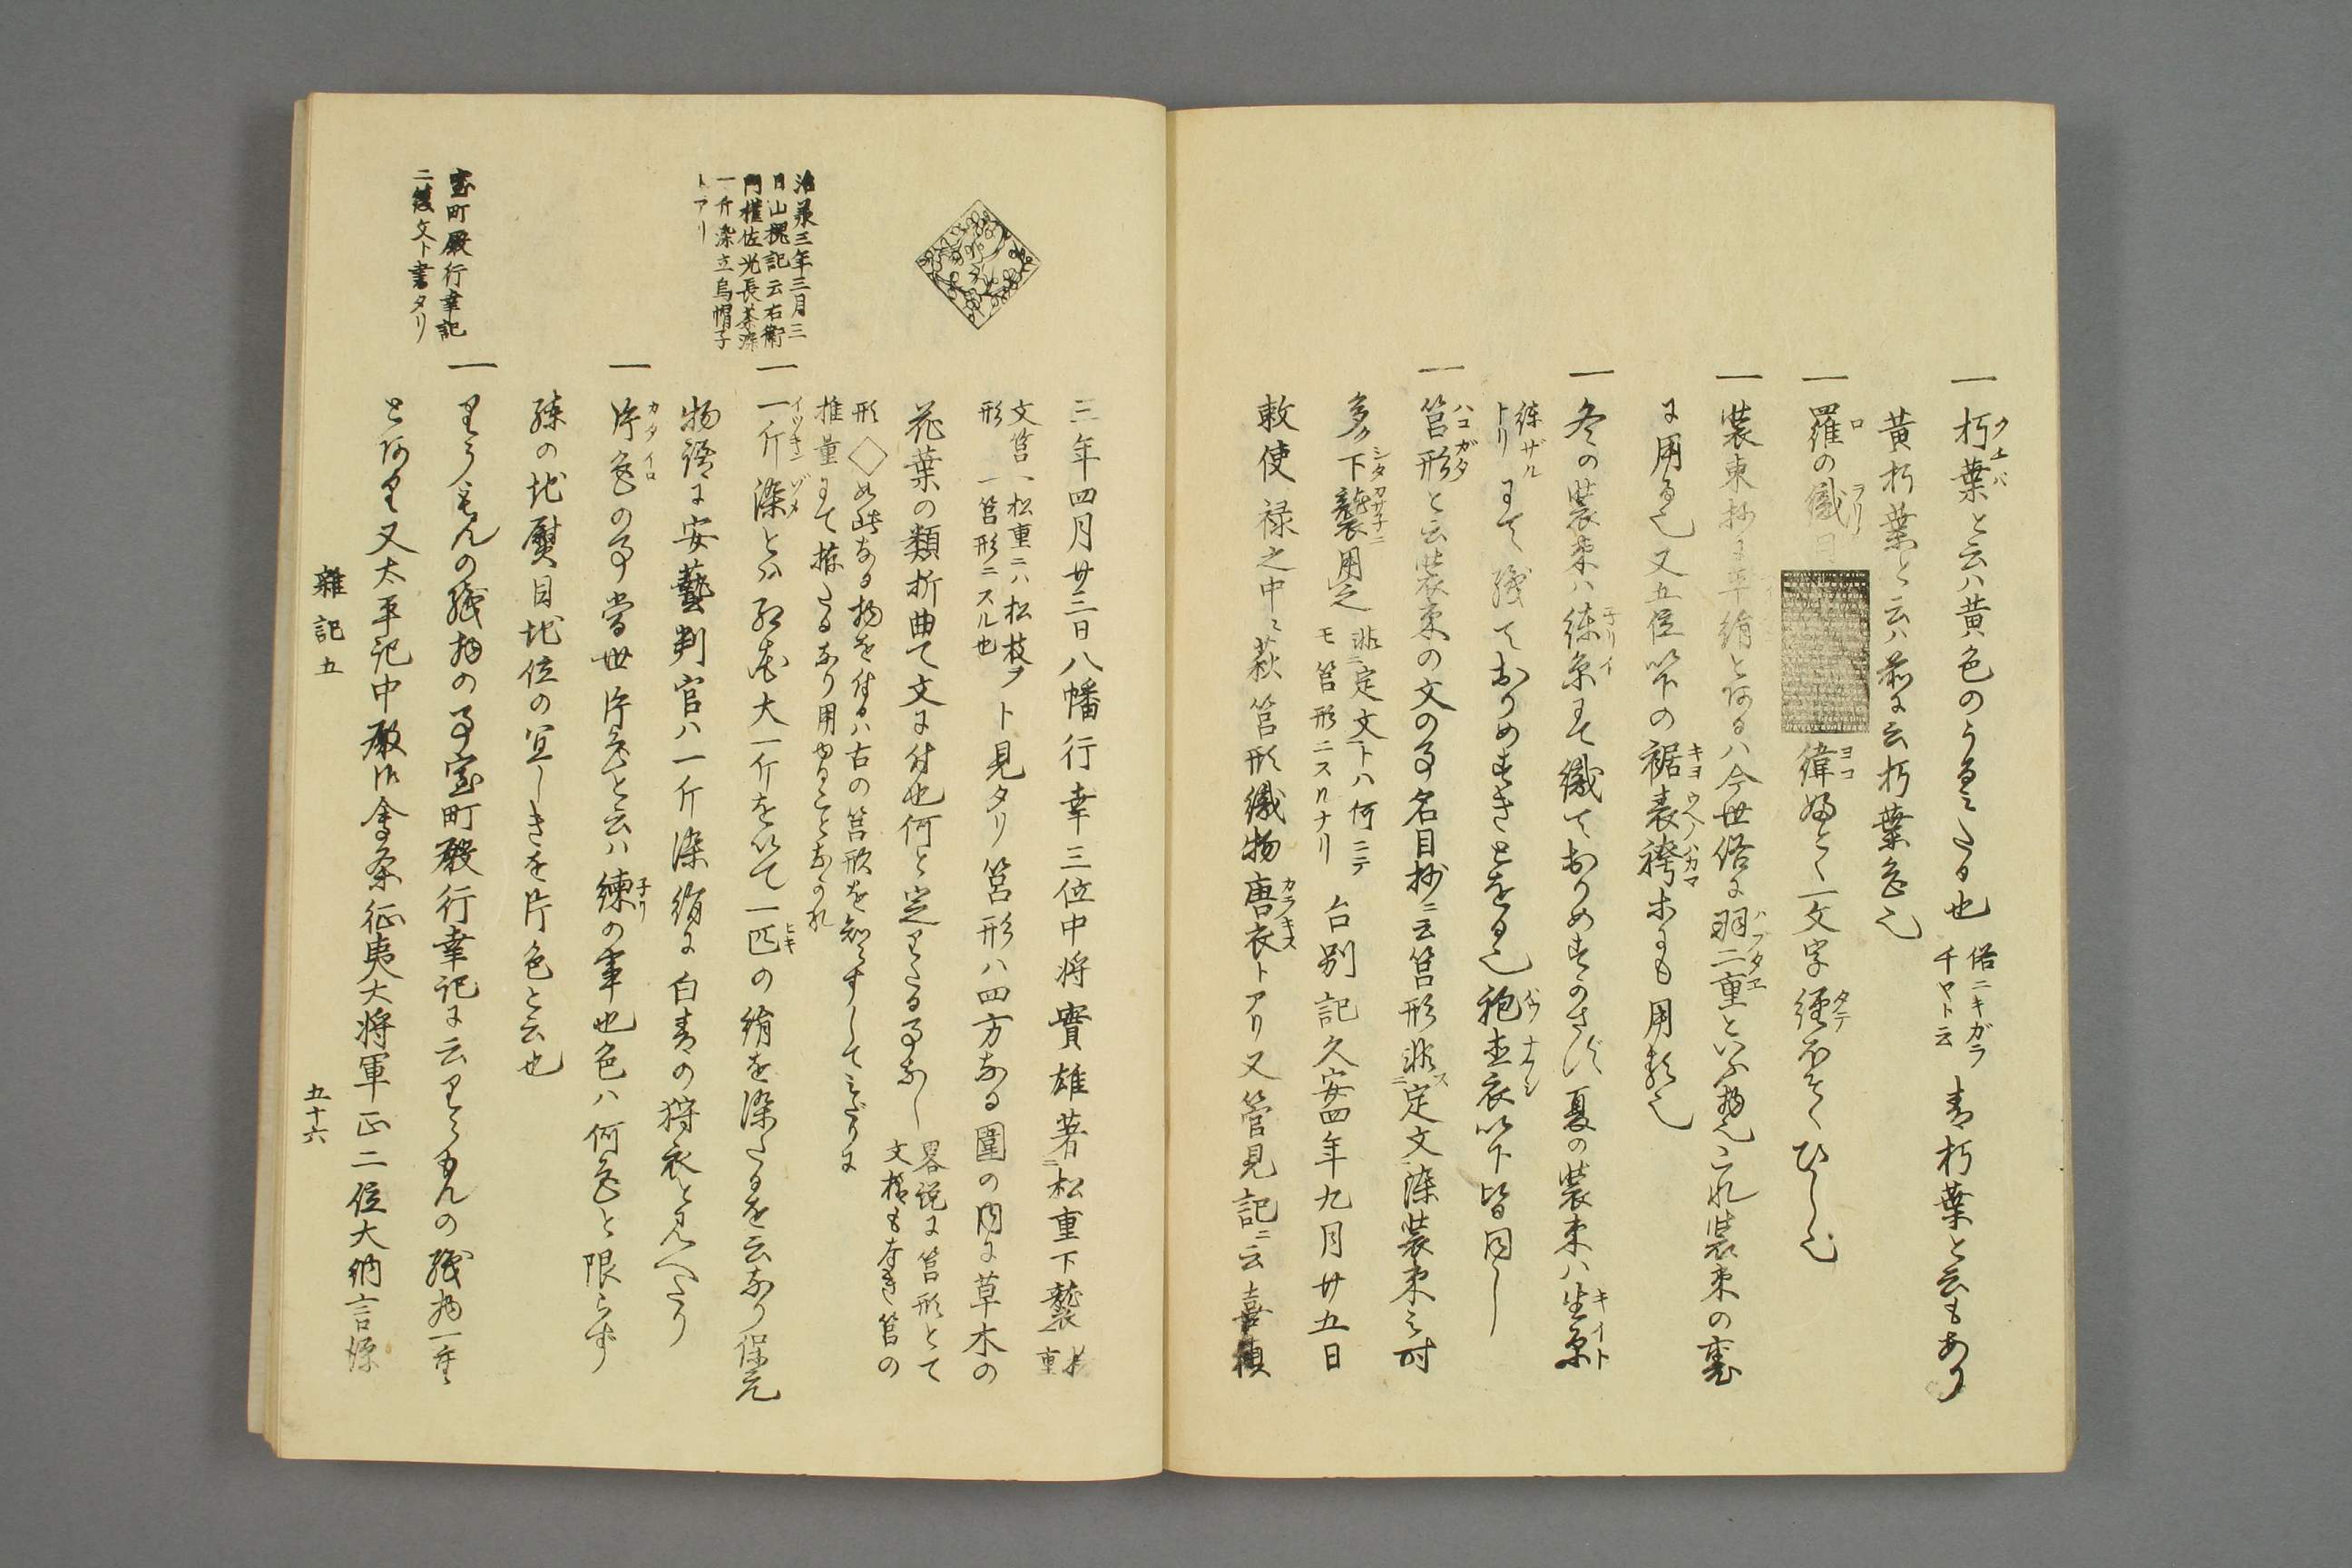 一 朽葉と云ハ黄色のうるみたる也 俗ニキガラ
チヤト云 青朽葉と云もあり
黄朽葉と云ハ前に云朽葉色也
一 羅の織目 緯ふとく一文字経ほそくひし也
一 装束抄に平絹とあるハ今世俗に羽二重といふ物也これ装束の裏
に用る也又五位以下の裾表袴ホにも用る也
一 冬の装束ハ練糸にて織ておりめすかさず夏の装束ハ生糸
練ザル
トリ にて織ておりめすきとをる也袍直衣以下皆同し
一 筥形と云装束の文の事名目抄ニ云筥形非定文染装束之時
多ク下襲用之 非定文トハ何ニテ
モ筥形ニスルナリ 台別記久安四年九月廿五日
敕使禄之中ニ萩筥形織物唐衣トアリ又管見記ニ云嘉禎
三年四月廿三日八幡行幸三位中将實雄著松重下襲
文筥一松重ニハ松枝ヲ
形一筥形ニスル也 ト見タリ筥形ハ四方なる圍の内に草木の
花葉の類折曲て文に付也何と定りたる事なし 畧説に筥形とて
文様も なき筥の
形◇如此なる物を付るハ古の筥形を知らずしてみだりに
推量にて 拵たるなり用ゆることなかれ
一 一斤染とハ紅花大一斤を以て一匹の絹を染たるを云なり保元
物語に安藝判官ハ一斤染絹に白青の狩衣と見へたり
一 片色の事當世片色と云ハ練の事也色ハ何色と限らず
練の地熨目地位の宜しきを片色と云也
一 りうもんの織物の事室町殿行幸記に云りうもんの織物一重
とあり又太平記中殿御會条征夷大将軍正二位大納言源
治承三年三月三
日山槐記云右衛
門權佐光長茶染
一斤染立烏帽子
トアリ
室町殿行幸記
二綾文ト書タリ
雜記五
五十六